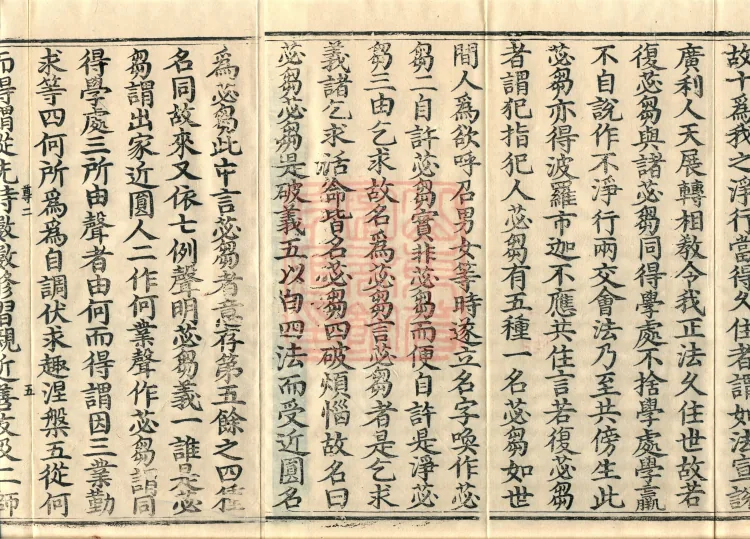 故十爲我之淨行當得久住者謂如法宣說
廣利人天展轉相教令我正法久住世故若
復苾芻與諸苾芻同得學處不捨學處學羸
不自說作不淨行兩交會法乃至共傍生此
苾芻亦得波羅市迦不應共住言若復苾芻
者謂犯指犯人苾芻有五種一名苾芻如世
間人爲欲呼召男女等時遂立名字喚作苾
芻二自許苾芻實非苾芻而便自許是淨苾
芻三由乞求故名爲苾芻言苾芻者是乞求
義諸乞求活命皆名苾芻四破煩惱故名曰
苾芻苾芻是破義五以白四法而受近圓名
爲苾芻此中言苾芻者意存第五餘之四種
名同故來又依七例聲明苾芻義一誰是苾
芻謂出家近圓人二作何業聲作苾芻謂同
得學處三所由聲者由何而得謂因三業勤
求等四何所爲爲自調伏求趣涅槃五從何
尊二 五
而得謂從先時數數修習親近善友及二師